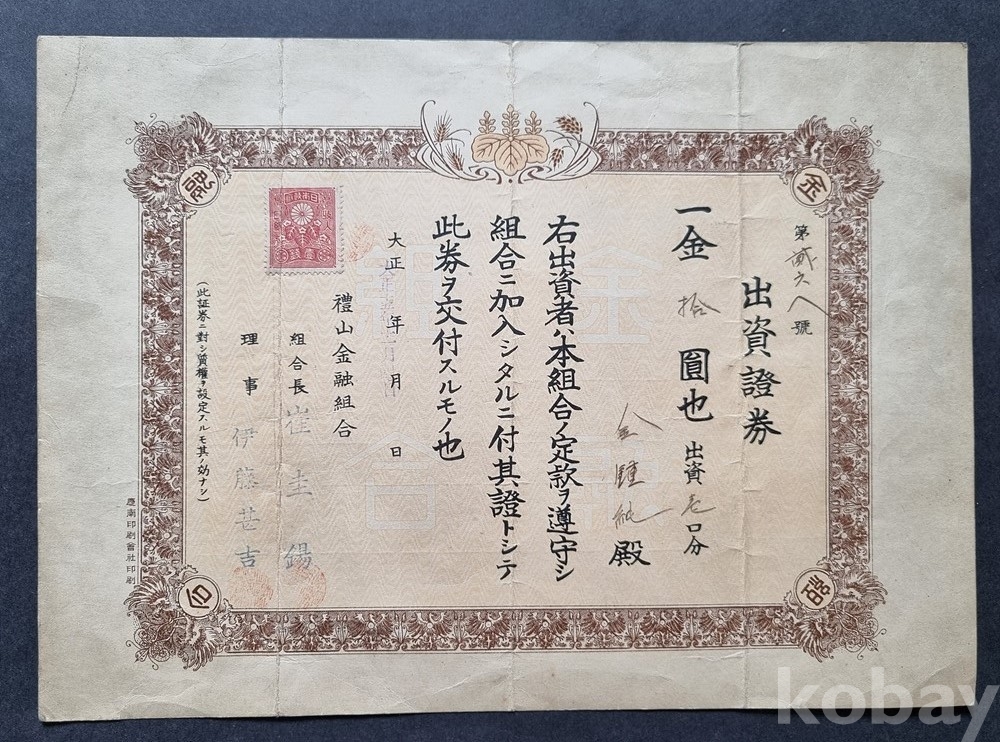 出資證券
第貳六八號
一金拾圓也 出資壱口分
金鍾純殿
右出資者ハ本組合ノ定款ヲ遵守シ
組合ニ加入シタルニ付其證トシテ
此券ヲ交付スルモノ也
大正 年 月 日
禮山金融組合
組合長 崔圭錫
理事 伊藤甚吉
(此証券ニ對シ質權ヲ設定スルモ其ノ効ナシ)
慶南印刷會社印刷
金
融
組
合
kobay